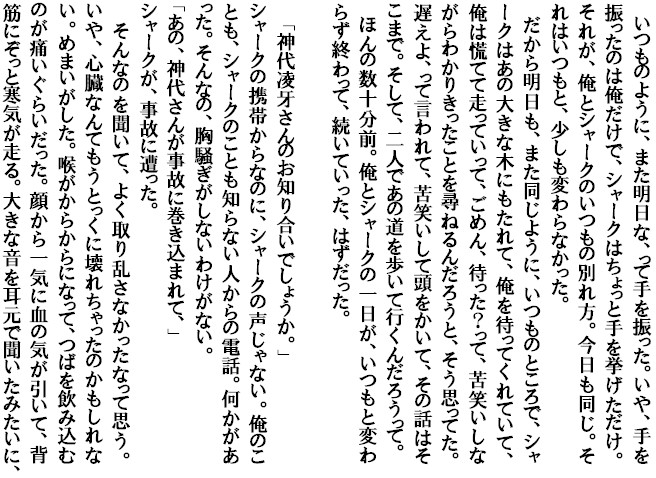 いつものように、また明日な、って手を振った。いや、手を
振ったのは俺だけで、シャークはちょっと手を挙げただけ。
それが、俺とシャークのいつもの別れ方。今日も同じ。そ
れはいつもと、少しも変わらなかった。
だから明日も、また同じように、いつものところで、シャ
ークはあの大きな木にもたれて、俺を待ってくれていて、
俺は慌てて走っていって、ごめん、待った？って、苦笑いしな
がらわかりきったことを尋ねるんだろうと、そう思ってた。
遅えよ、って言われて、苦笑いして頭をかいて、その話はそ
こまで。そして、二人であの道を歩いて行くんだろうって。
ほんの数十分前。俺とシャークの一日が、いつもと変わ
らず終わって、続いていった、はずだった。
「神代凌牙さんのお知り合いでしょうか。」
シャークの携帯からなのに、シャークの声じゃない。俺のこ
とも、シャークのことも知らない人からの電話。何かがあ
った。そんなの、胸騒ぎがしないわけがない。
「あの、神代さんが事故に巻き込まれて、」
シャークが、事故に遭った。
そんなのを聞いて、よく取り乱さなかったなって思う。
いや、心臓なんてもうとっくに壊れちゃったのかもしれな
い。めまいがした。喉がからからになって、つばを飲み込む
のが痛いぐらいだった。顔から一気に血の気が引いて、背
筋にぞっと寒気が走る。大きな音を耳元で聞いたみたいに、